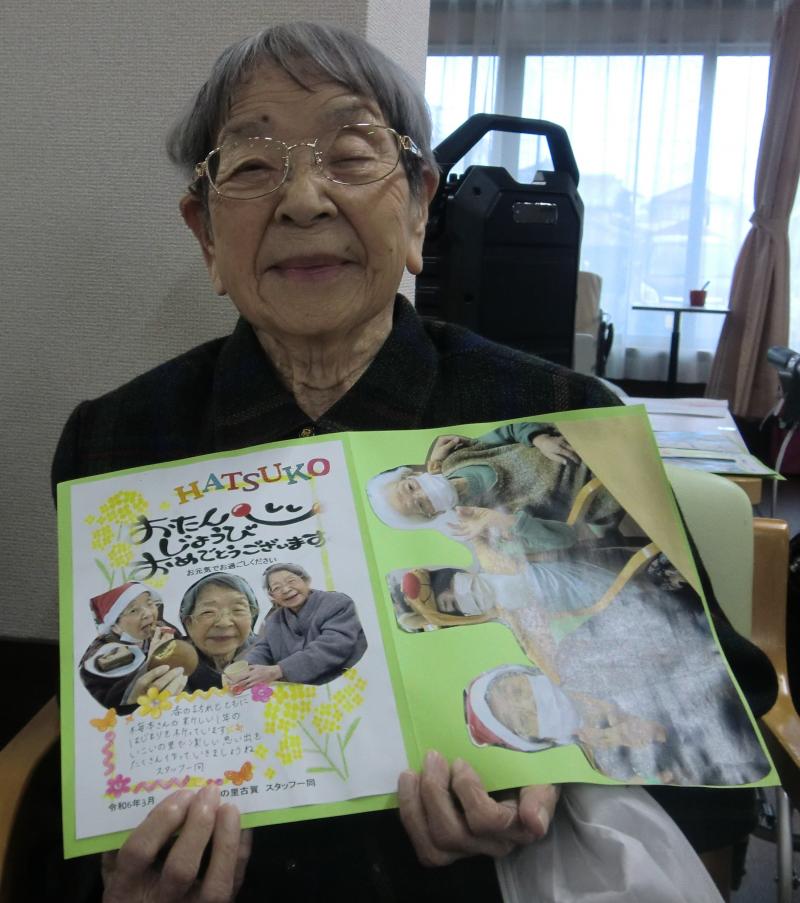 HATSUKO
おたん
じょうび
おめでとうございます
お元気でお過ごしください
春のおとずれとともに
さんの新しい1年の
はじまりを祈っています
いこいの里で楽しい思い出を
たくさん作っていきましょうね
スタッフ一同
令和6年3月 の里古賀 スタッフ一同